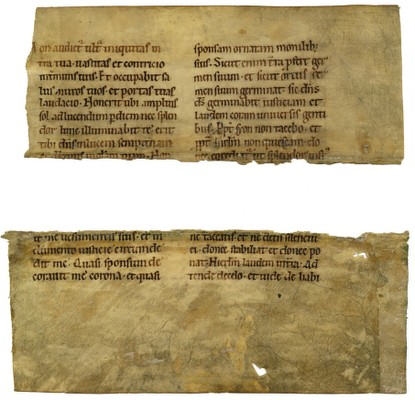 on audiet ult iniquitas in
tra tua uastitas et contricio
in tminis tuis. Et occupabit sa
lus muros tuos et portas tuas
laudacio. Non erit tibi amplius
sol ad lucendum p diem nec splen
dor lune illuminabit te. erit
tibi dns in lucem sempiternam
sponsam ornatam monilib
suis. Sicut enim tra pfert ger
men suum et sicut ortus
men suum germinat sic dns
ds germinabit iusticiam et
laudem coram uniuersis genti
bus. Ppt syon non tacebo. et
ppt hierlm non quiescam. do
nec egrediat ut splendor iust
it me uestimentis salutis et in
dumento iusticie circumde
dit me. Quasi sponsum de
coratum me corona. et quasi
ne taceatis et ne detis silencium
ei. donec stabiliat et donec po
nat hierlm laudem in tra. Ad
tende de celo. et uide de habi